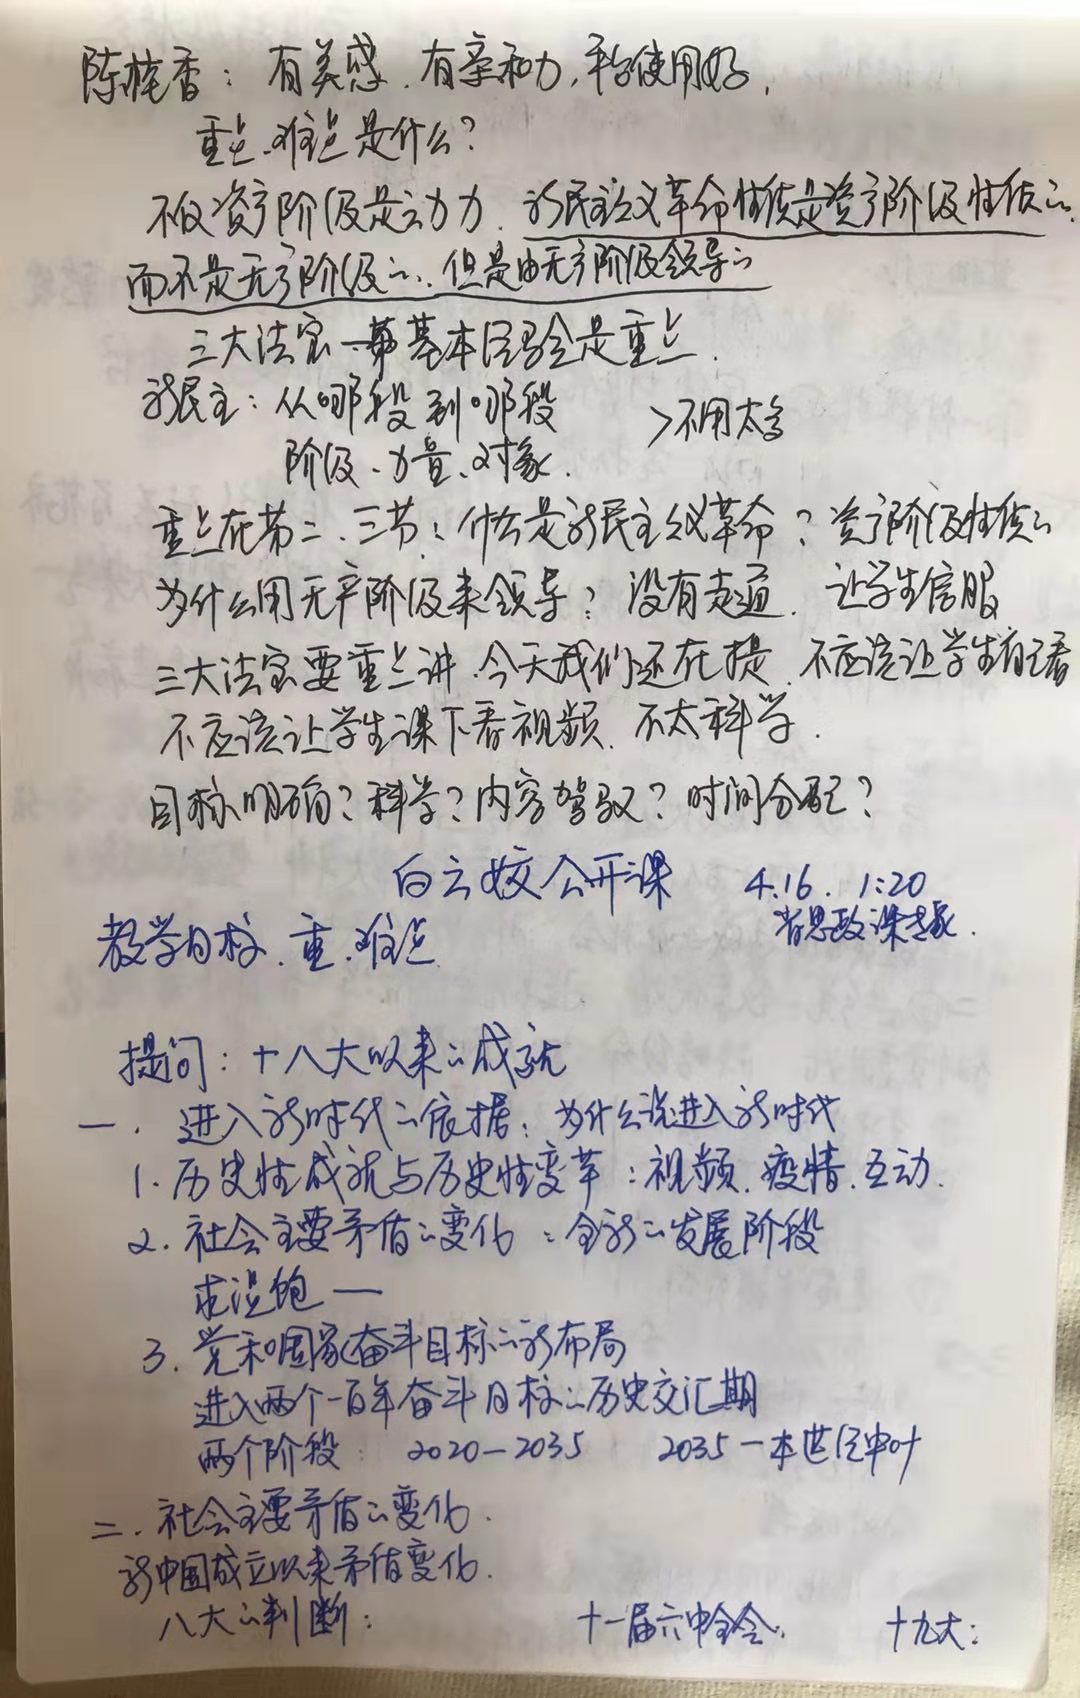 陈桂香：有美感、有亲和力，平台使用好，
重点、难点是什么？
不仅资产阶级是动力、新民主主义革命性质是资产阶级性质的、
而不是无产阶级的、但是由无产阶级领导的
三大法宝 基本经验是重点、
新民主：从哪段到哪段
>不用太多
阶级、力量、对象、
重点在第二、三节：什么是新民主主义革命？资产阶级性质的
为什么用无产阶级来领导？没有走通、让学生信服
三大法宝要重点讲、今天我们还在提、不应该让学生自己看
不应该让学生课下看视频、不太科学、
目标明确？科学？内容驾驭？时间分配？
白云姣公开课 4.16. 1:20
省思政课专家、
教学目标、重、难点
提问：十八大以来的成就
一、进入新时代的依据：为什么说进入新时代
1. 历史性成就与历史性变革：视频、疫情、互动、
2. 社会主要矛盾的变化：全新的发展阶段
求温饱—
3. 党和国家奋斗目标的新布局
进入两个一百年奋斗目标的历史交汇期
两个阶段 2020—2035 2035—本世纪中叶
二、社会主要矛盾的变化、
新中国成立以来矛盾变化、
八大的判断： 十一届六中全会： 十九大：